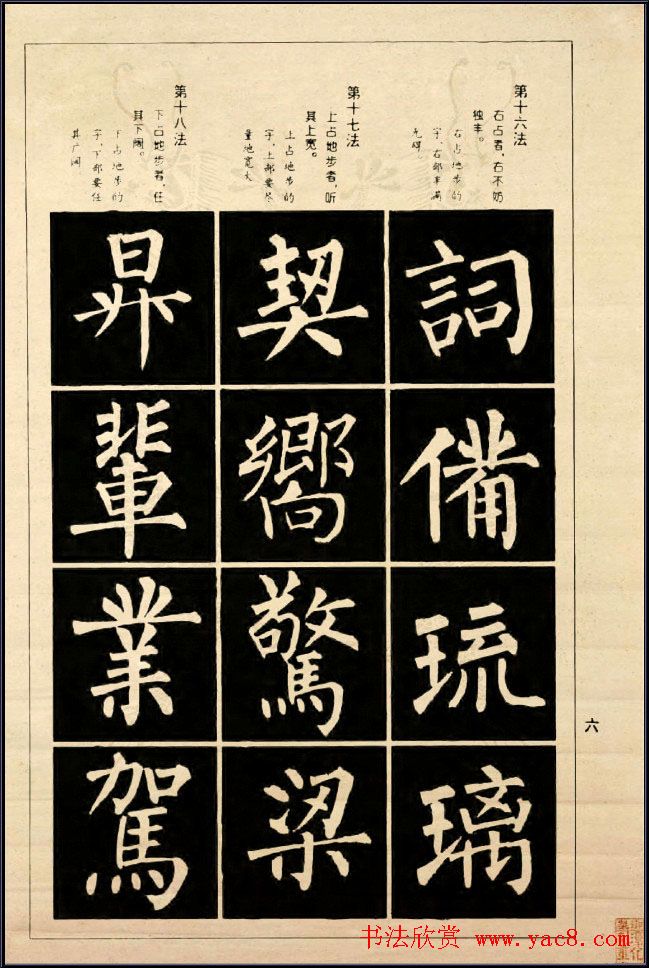 第十六法
右占者，右不妨
独丰。
右占地步的
字，右部丰满
无碍。
詞
備
琉
璃
第十七法
上占地步者，听
其上宽。
上占地步的
字，上部要尽
量地宽大
契
嚮
驚
梁
第十八法
下占地步者，任
其下阔。
下占地步的
字，下部要任
其广阔
昇
輩
業
駕
六
书法欣赏 www.yac8.com